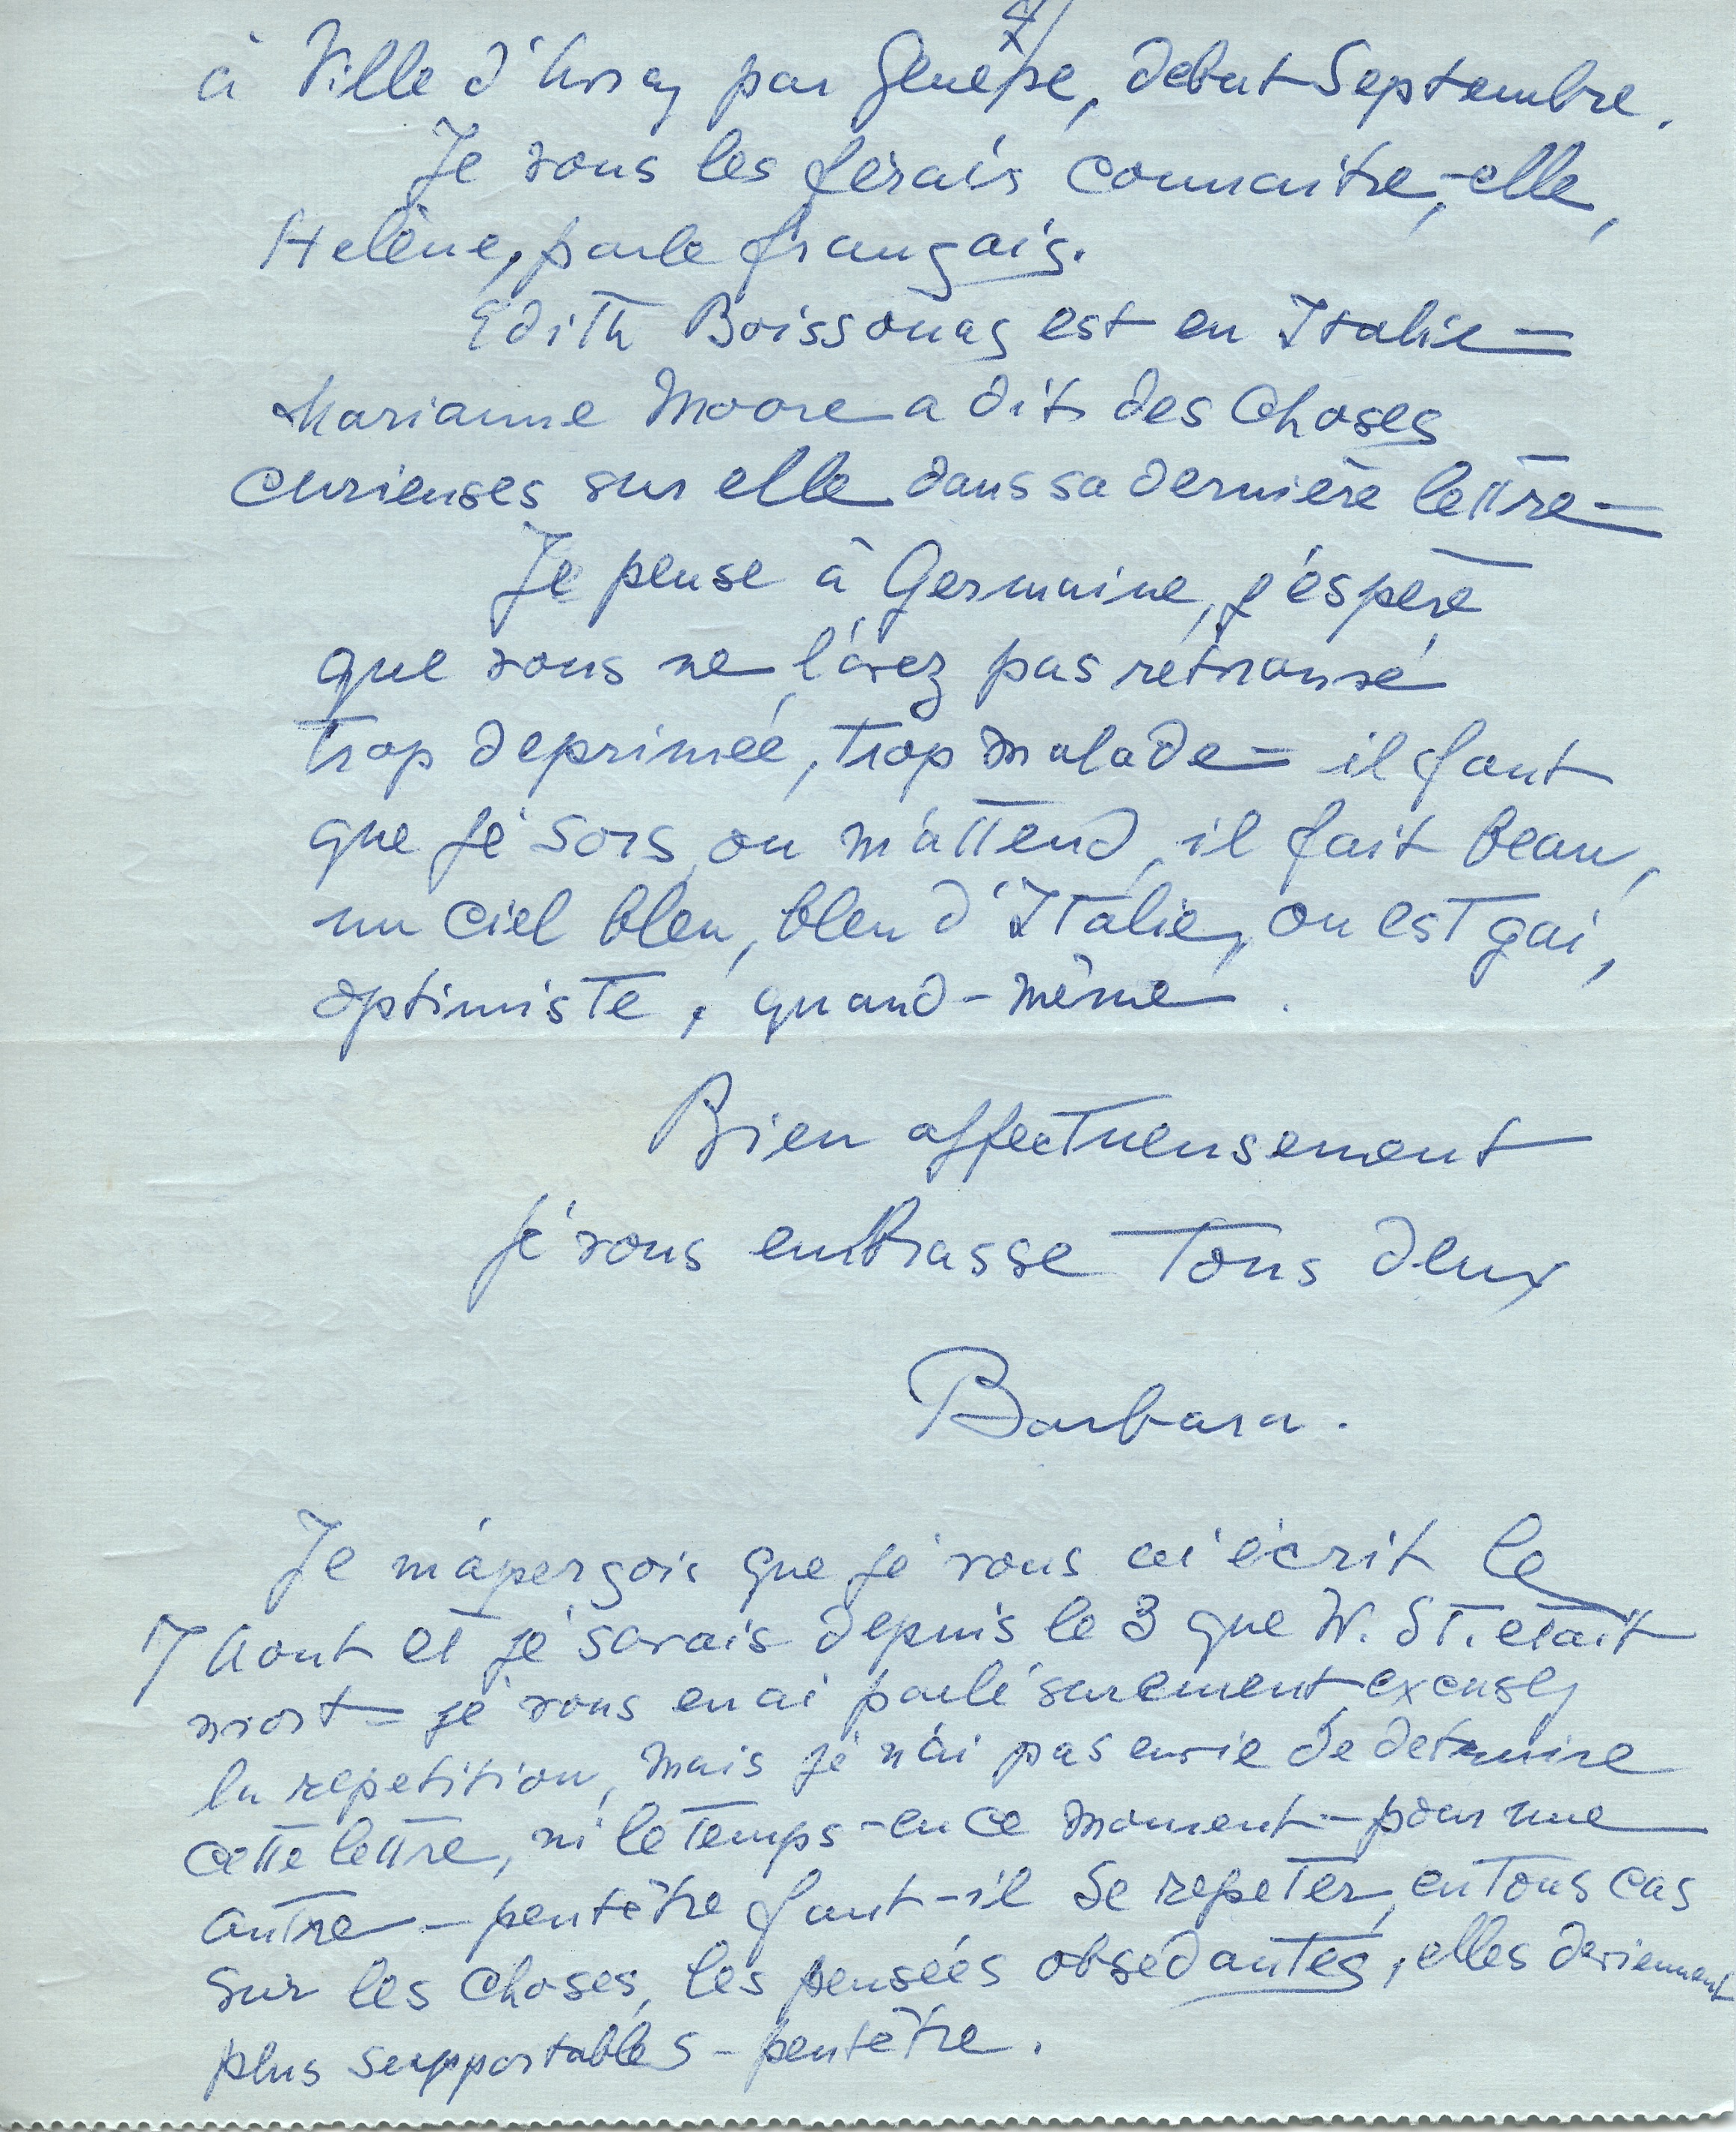 à Ville d'Avray par Genève, debut Septembre.
Je vous les ferais connaitre, - elle,
Helène, parle français.
Edith Boissonas est en Italie =
Marianne Moore a dit des choses
curieuses sur elle dans sa dernière lettre =
Je pense à Germaine, j'éspère
que vous ne l'avez pas rétrouvé
trop deprimée, trop malade = il faut
que je sors, on m'attend, il fait beau,
un ciel bleu, bleu d'Italie, on est gai,
optimiste, quand-même.
Bien affectueusement
je vous embrasse tous deux
Barbara.
Je m'aperçois que je vous ai écrit le
7 Aout et je savais depuis le 3 que W. St. etait
mort = je vous en ai parlé surement excusez
la repetition, mais je n'ai pas envie de detruire
cette lettre, ni le temps - en ce moment - pour une
autre - peutètre faut-il se repeter, en tous cas
sur les choses, les pensées obsedantes, elles deviennent
plus supportables - peutètre.